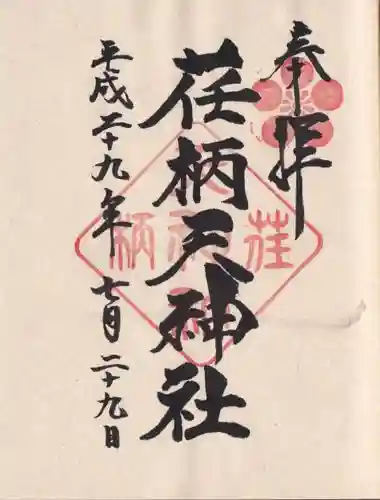 奉拝
荏柄天神社
平成二十九年七月二十九日
荏
柄